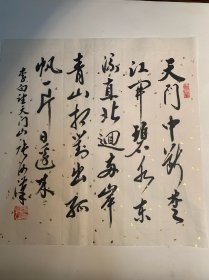 天门中断楚
江開碧水东
流直北迴两岸
青山相對出孤
帆一片日邊来
李白望天门山